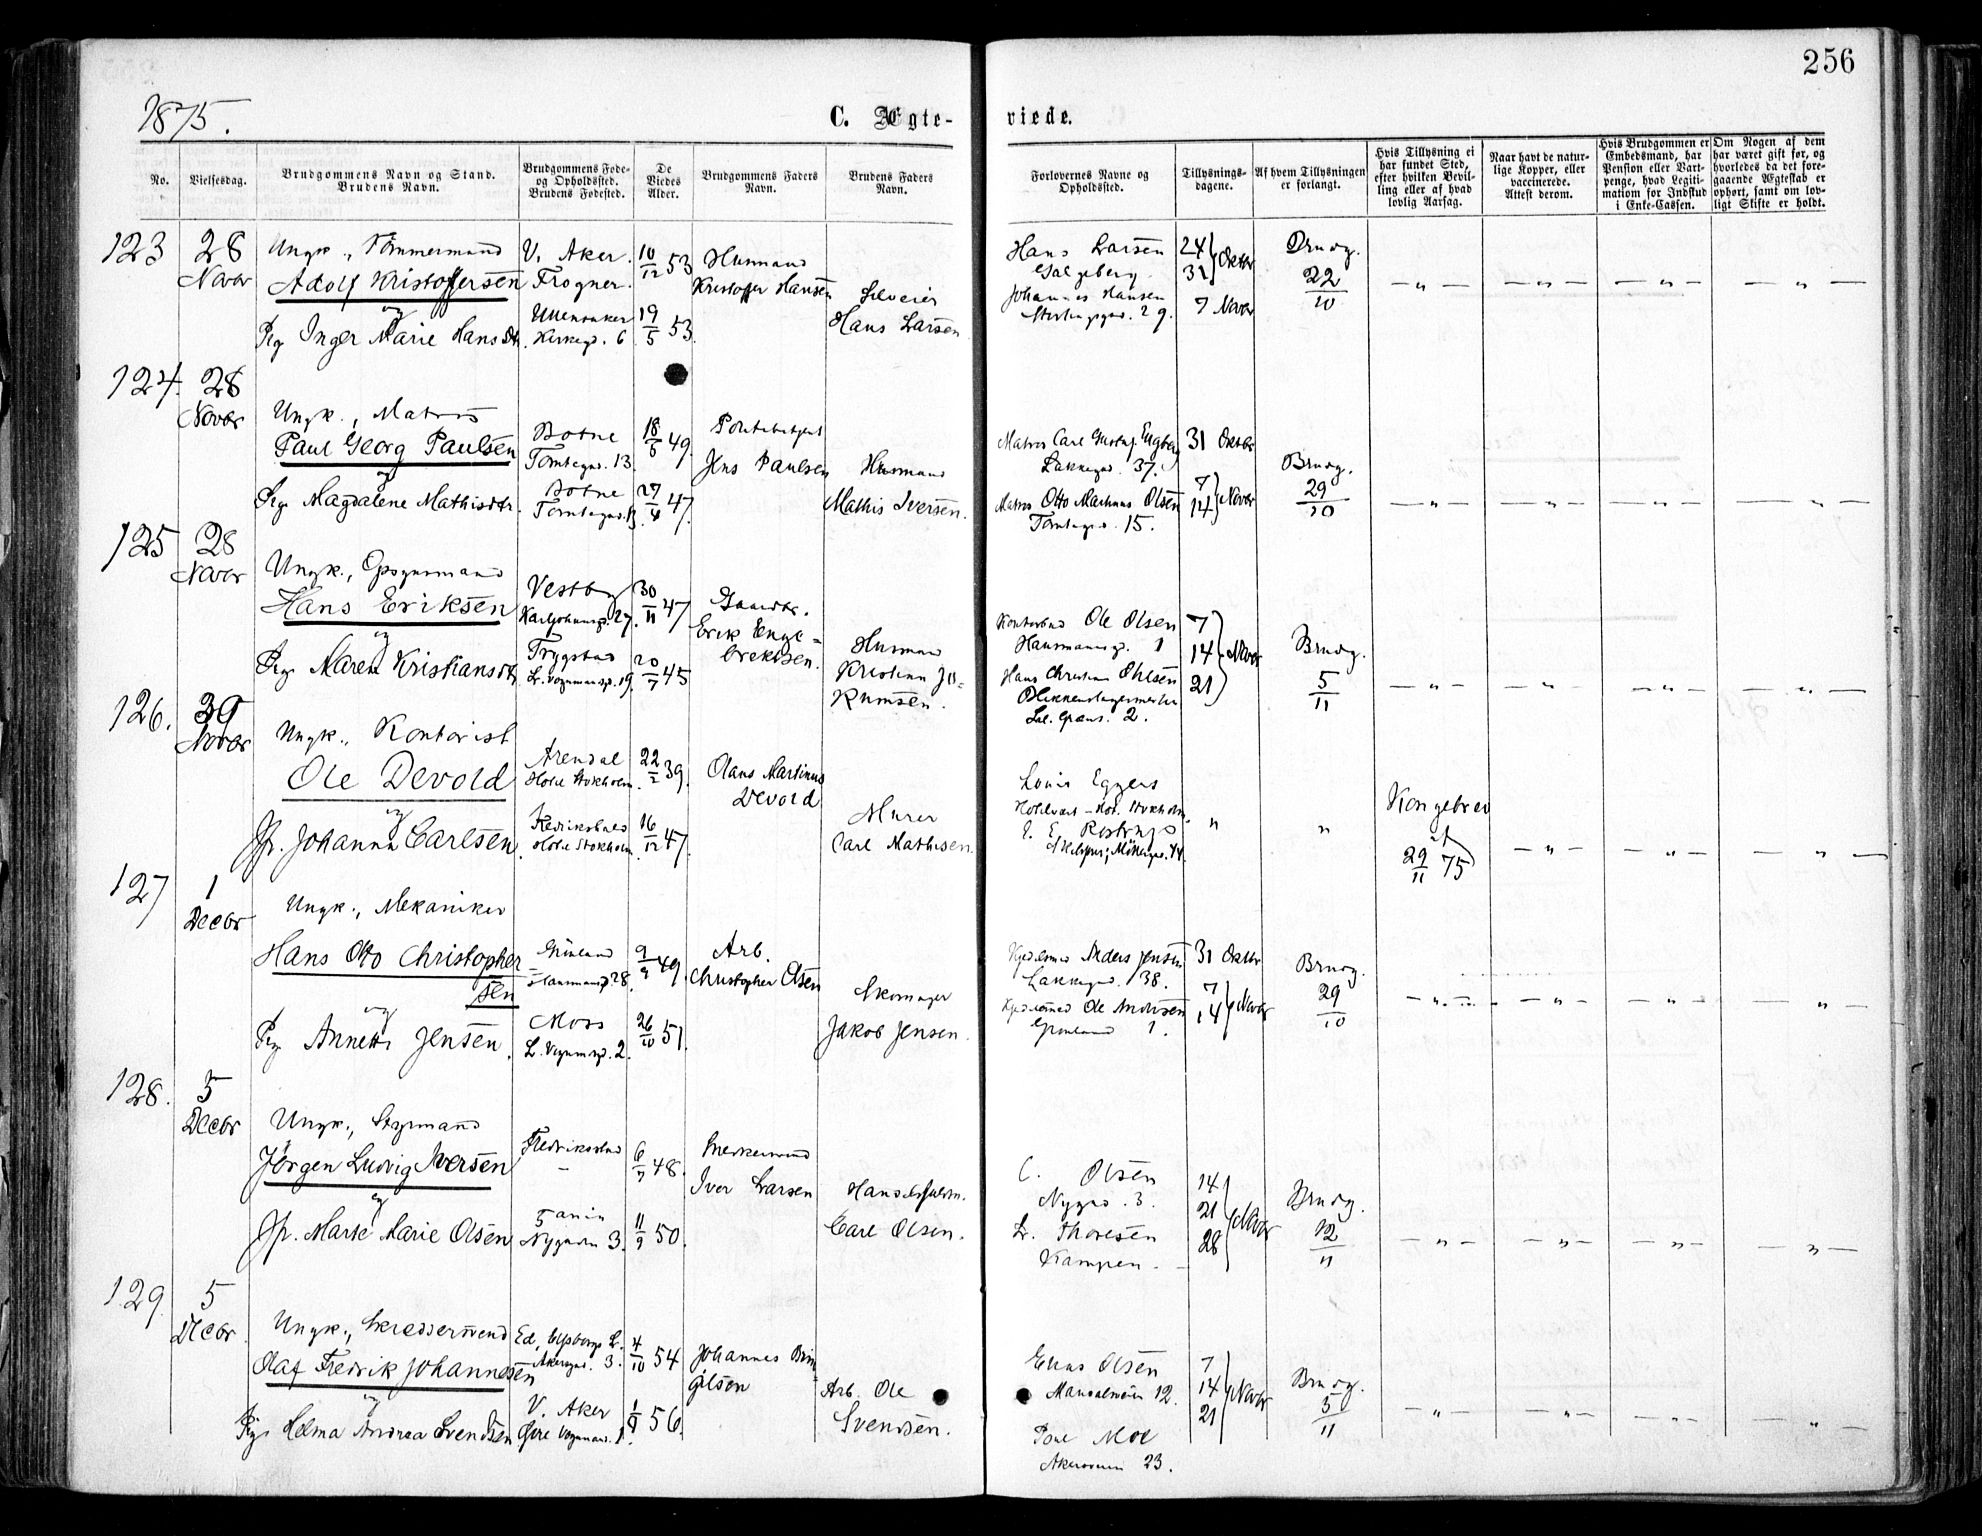 256
1875.
C. Ægte-
viede.
No.
Vielsesdag.
Brudgommens Navn og Stand.
Brudens Navn.
Brudgommens Føde-
og Opholdssted.
Brudens Fødested.
De
Viedes
Alder.
Brudgommens Faders
Navn.
Brudens Faders
Navn.
Forlovernes Navne og
Opholdssted.
Tillysnings-
dagene.
Af hvem Tillysningen
er forlangt.
Hvis Tillysning ei
har fundet Sted,
efter hvilken Bevil-
ling eller af hvad
lovlig Aarsag.
Naar havt de natur-
lige Kopper, eller
vaccinerede.
Attest derom.
Hvis Brudgommen er
Embedsmand, har
Pension eller Vart-
penge, hvad Legiti-
mation for Indskud
i Enke-Cassen.
Om Nogen af dem
har været gift før, og
hvorledes da det fore-
gaaende Ægteskab er
ophørt, samt om lov-
ligt Skifte er holdt.
123
28
Novbr
Ungk., Tømmermand
Adolf Kristoffersen
og
Pig. Inger Marie Hansdtr.
V. Aker.
Frogner.
Kirkegd. 6
10/12 53
19/5 53.
Husmand
Kristoffer Hansen
Hans Larsen
Hans Larsen
Galgeberg.
Johannes Hansen
24
31 Oktbr
7 Novbr
Brudg.
22/10
124.
28
Novbr
Ungk., Matros
Paul Georg Paulsen
og
Pig. Magdalene Mathisdtr.
Botne
Tomtegd. 13.
Botne
Tomtegd. 13.
18/5 49.
27/4 47.
Politibetjent
Jens Paulsen
Husmand
Mathis Iversen.
Matros Carl Gustaf Engberg
Lakkegd. 37.
Matros Otto Martinus Olsen
Tomtegd. 15.
31 Oktbr
7
14 Novbr
Brudg.
29/10
125
28
Novbr
Ungk., Opsynsmand
Hans Eriksen
og
Pig. Maren Kristiansdtr.
Vestby
Karljohansgd. 27.
Trygstad
L. Vognmansgd. 19.
30/11 47
20/7 45
Gaardbr.
Erik Enge-
brektsen.
Husmand
Kristian Jo-
kumsen.
Kontorbud Ole Olsen
Hausmannsgd. 1
Hans Christian Olsen
Blikkenslagermester
2.
7
14 Novbr
21
Brudg.
5/11
126.
29
Novbr
Ungk., Kontorist
Ole Devold
og
Jfr. Johanna Carlsen.
Arendal
Hotel Stokholm.
Fredrikshald
Hotel Stokholm.
22/2 39.
16/12 47.
Olaus Martinus
Devold
Murer
Carl Mathisen.
Louis Eggers
Hotelvært - Hot. Stokholm.
Kongebrev
af
29/11 75
127
1
Decbr
Ungk., Mekaniker
Hans Otto Christopher
sen
og
Pig. Annette Jensen.
Grønland
Hausmansgd 28.
Moss
L. Vognmgd. 2.
9/9 49.
26/10 51.
Arb.
Christopher Olsen
Skomager
Jakob Jensen.
Anders Jensen
Lakkegd. 38.
Ole Andersen
Grønland 1.
31 Oktbr
7
14 Novbr
Brudg.
29/10
128.
5
Decbr
Ungk., Styrmand
Jörgen Ludvig Iversen
og
Jfr. Marte Marie Olsen
Fredrikstad
Nygaden 3.
6/7 48.
11/9 50.
Snekkersvend
Iver Larsen
Carl Olsen.
C. Olsen
Nygad. 3.
L. Thoresen
Kampen.
14
21 Novbr
28
Brudg.
12/11
129.
5
Decbr
Ungk., Skræddersvend
Olaf Fredrik Johannesen
og
Pig. Helma Andrea Svendsen
Akersgd. 3.
V. Aker
Øvre Vognmansgd. 1.
4/10 54
1/9 56.
Johannes Brin
gilsen
Arb. Ole
Svendsen.
Elias Olsen
12.
Poul Moe
Akersveien 23.
7
14 Novbr
21
Brudg.
5/11